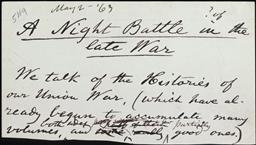 May 2 - '63
A Night Battle in the
late War
We talk of the Histories of
our Union War, (which have al-
ready begun to accumulate many
both big
partially
volumes, and good ones)